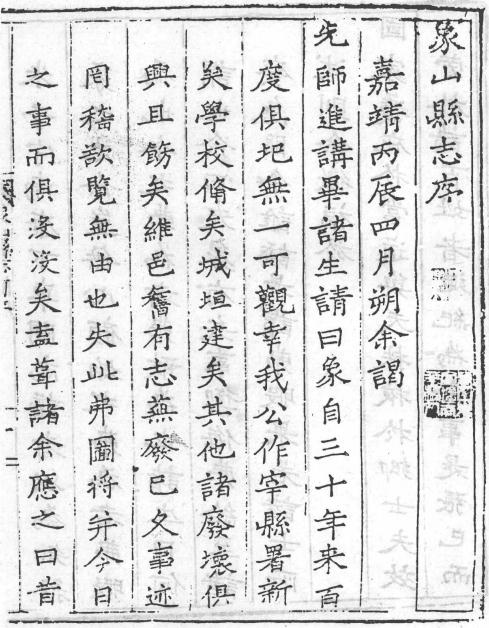 象山縣志序
嘉靖丙辰四月朔余謁
先師進講畢諸生請曰象自三十年来百
度俱圮無一可觀幸我公作宰縣署新
矣學校脩矣城垣建矣其他諸廢壞俱
興且飭矣維邑舊有志蕪廢已久事迹
罔稽欲覧無由也失此弗圖将并今日
之事而俱沒沒矣盍葺諸余應之曰昔